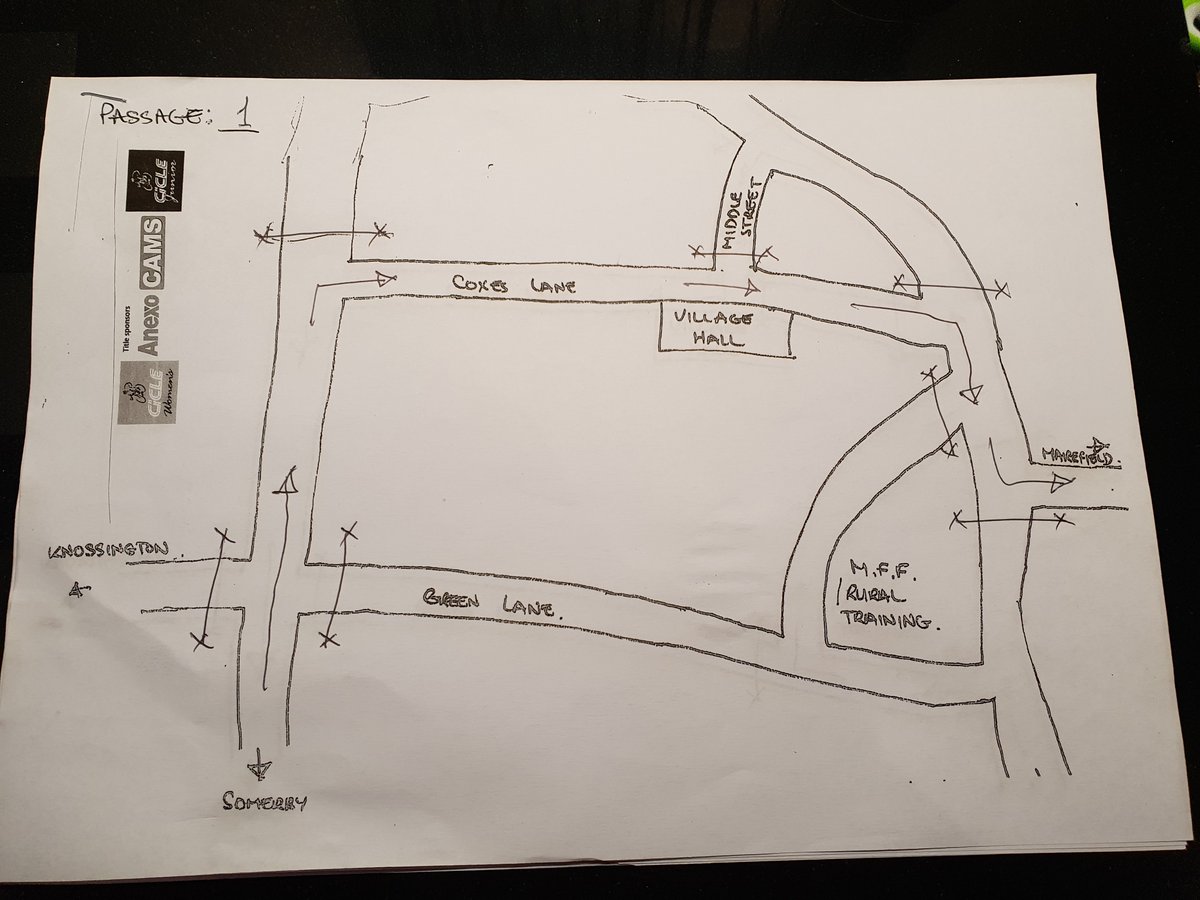 PASSAGE: 1
CiCLE
Junior
CAMS
Anexo
Title sponsors
CiCLE
Women's
MIDDLE
STREET
COXES LANE
VILLAGE
HALL
MAREFIELD.
KNOSSINGTON.
GREEN LANE.
M.F.F.
RURAL
TRAINING.
SOMERBY